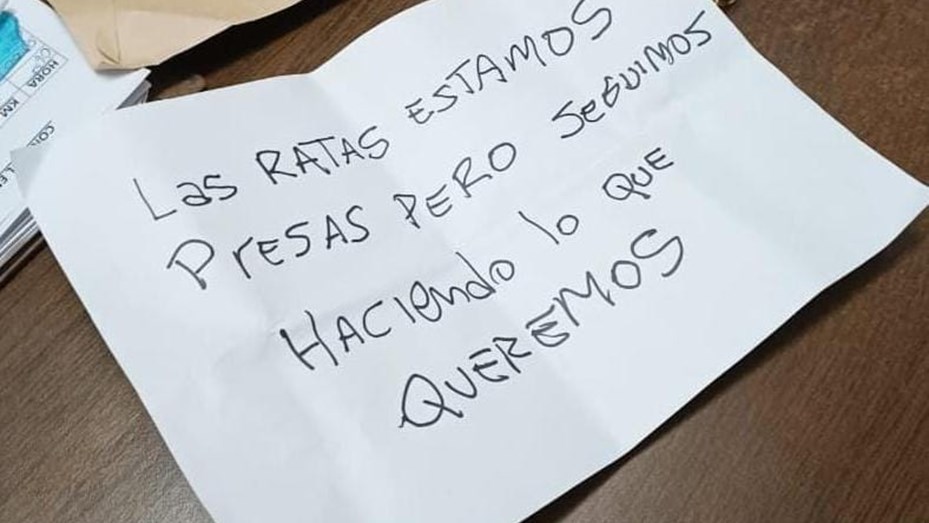 Las RATAS ESTAMOS
PresAS PERO SEGUIMOS
HACIEndo lo QUE
QUEREMOS
HORA KM